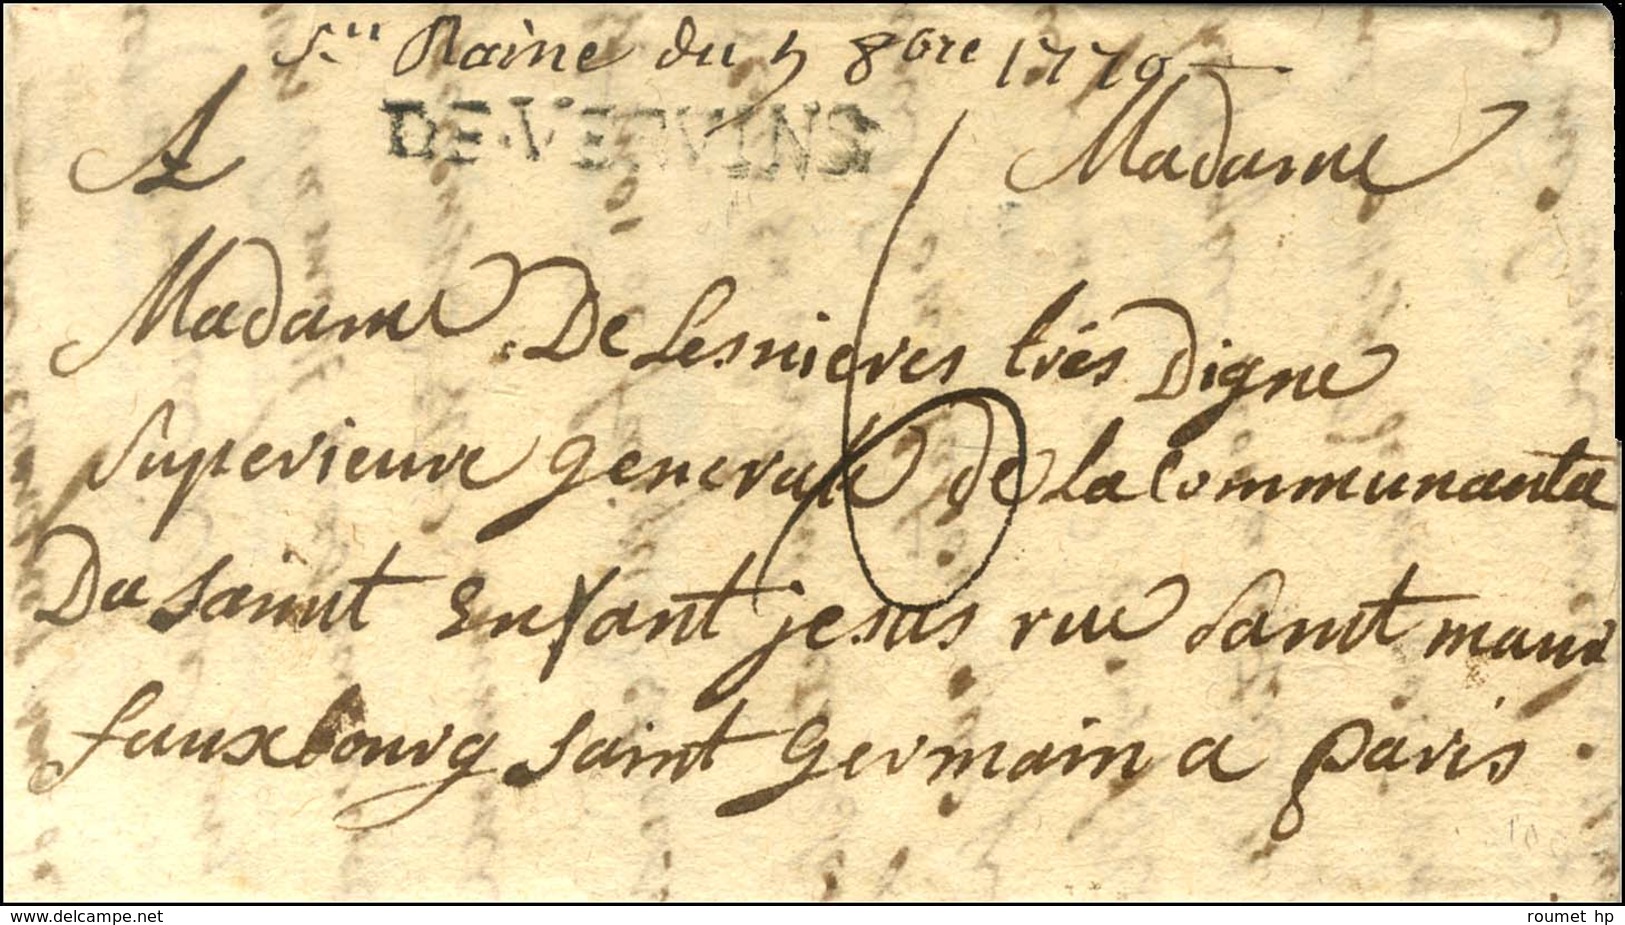 Sr Raine du 5 8bre 1770
DE·VERVINS
A Madame
Madame De Lesnieres très Digne
Superieure generale de la Communauté
Du Saint Enfant jesus rue Saint maur
fauxbourg Saint Germain a paris
6
www.delcampe.net
roumet hp